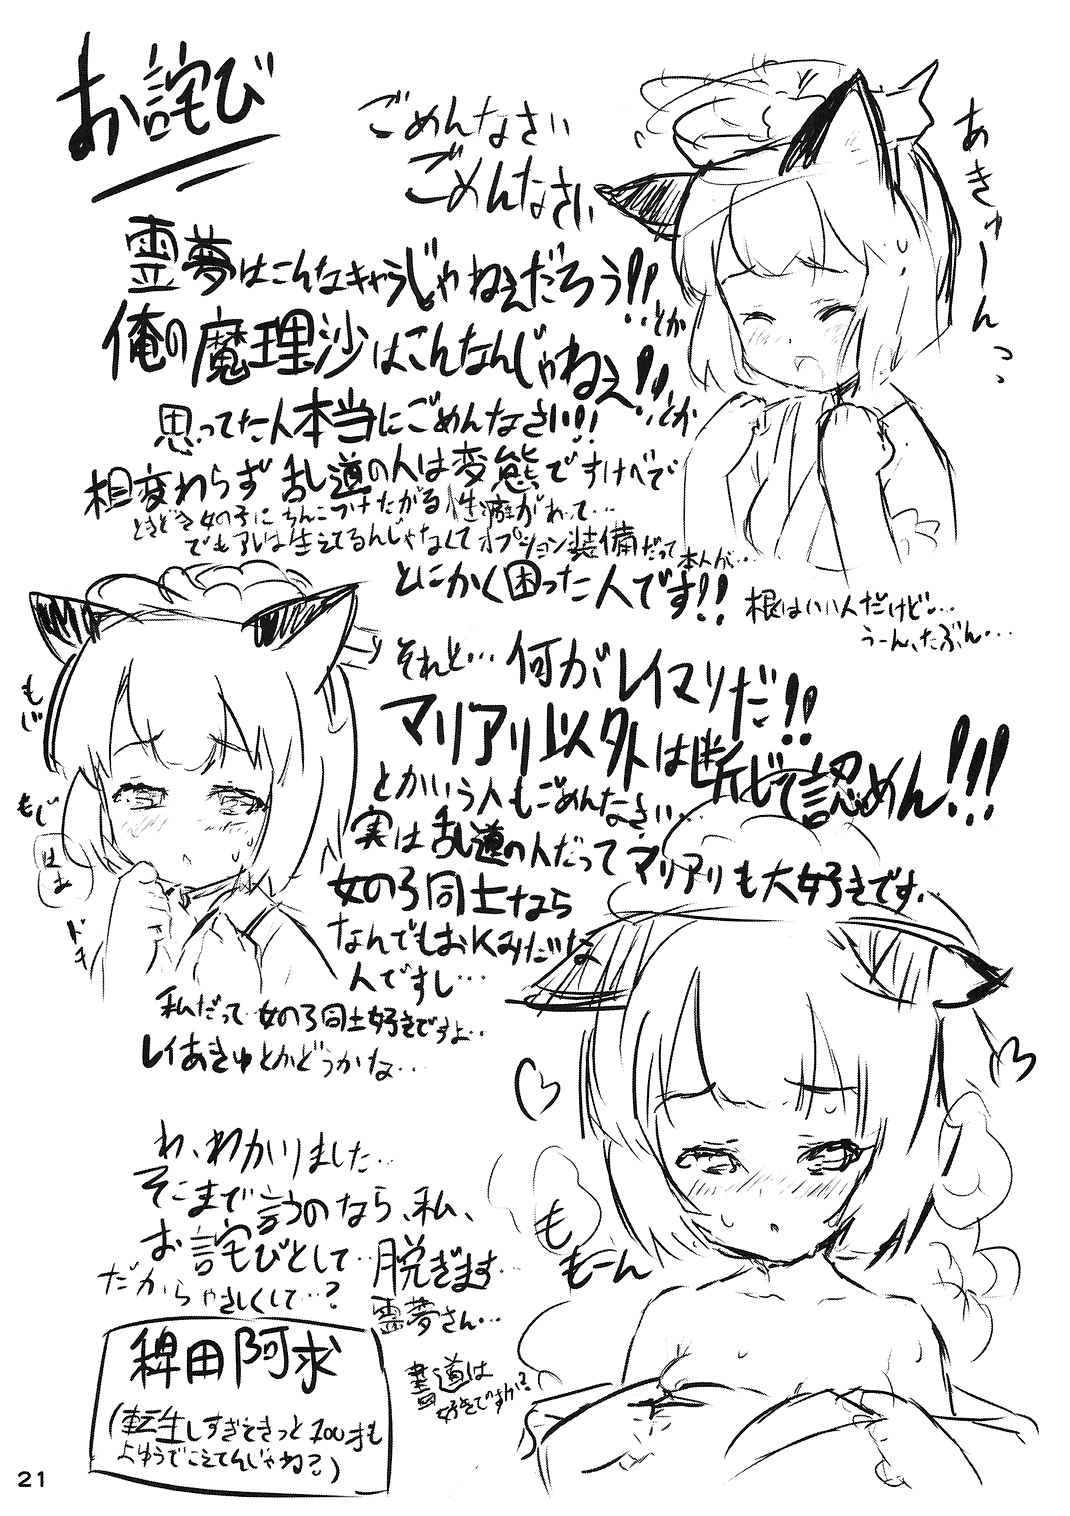 お詫び
ごめんなさい
ごめんなさい
あきゅーんっ
霊夢はこんなキャラじゃねぇだろう!!とか
俺の魔理沙はこんなんじゃねぇ!!とか
思ってた人本当にごめんなさい!!
相変わらず乱道の人は変態ですけべで
ときどき女の子にちんこつけたがる性癖があって…
でもアレは生えてるんじゃなくてオプション装備だって本人が…
とにかく困った人です!!
根はいい人だけど…
うーん、たぶん…
それと…何がレイマリだ!!
マリアリ以外は断じて認めん!!!
とかいう人もごめんなさい…
実は乱道の人だってマリアリも大好きです.
女の子同士なら
なんでもおKみたいな
人ですし…
私だって女の子同士好きですよ…
レイあきゅとかどうかな…
もじ
もじ
はぁ
ドキ
わ、わかりました…
そこまで言うのなら、私、
お詫びとして…脱ぎます…
だからやさしくして…?
霊夢さん…
書道は
好きですか?
ももーん
稗田阿求
(転生しすぎときっと200才も
よゆうでこえてんじゃね?)
21